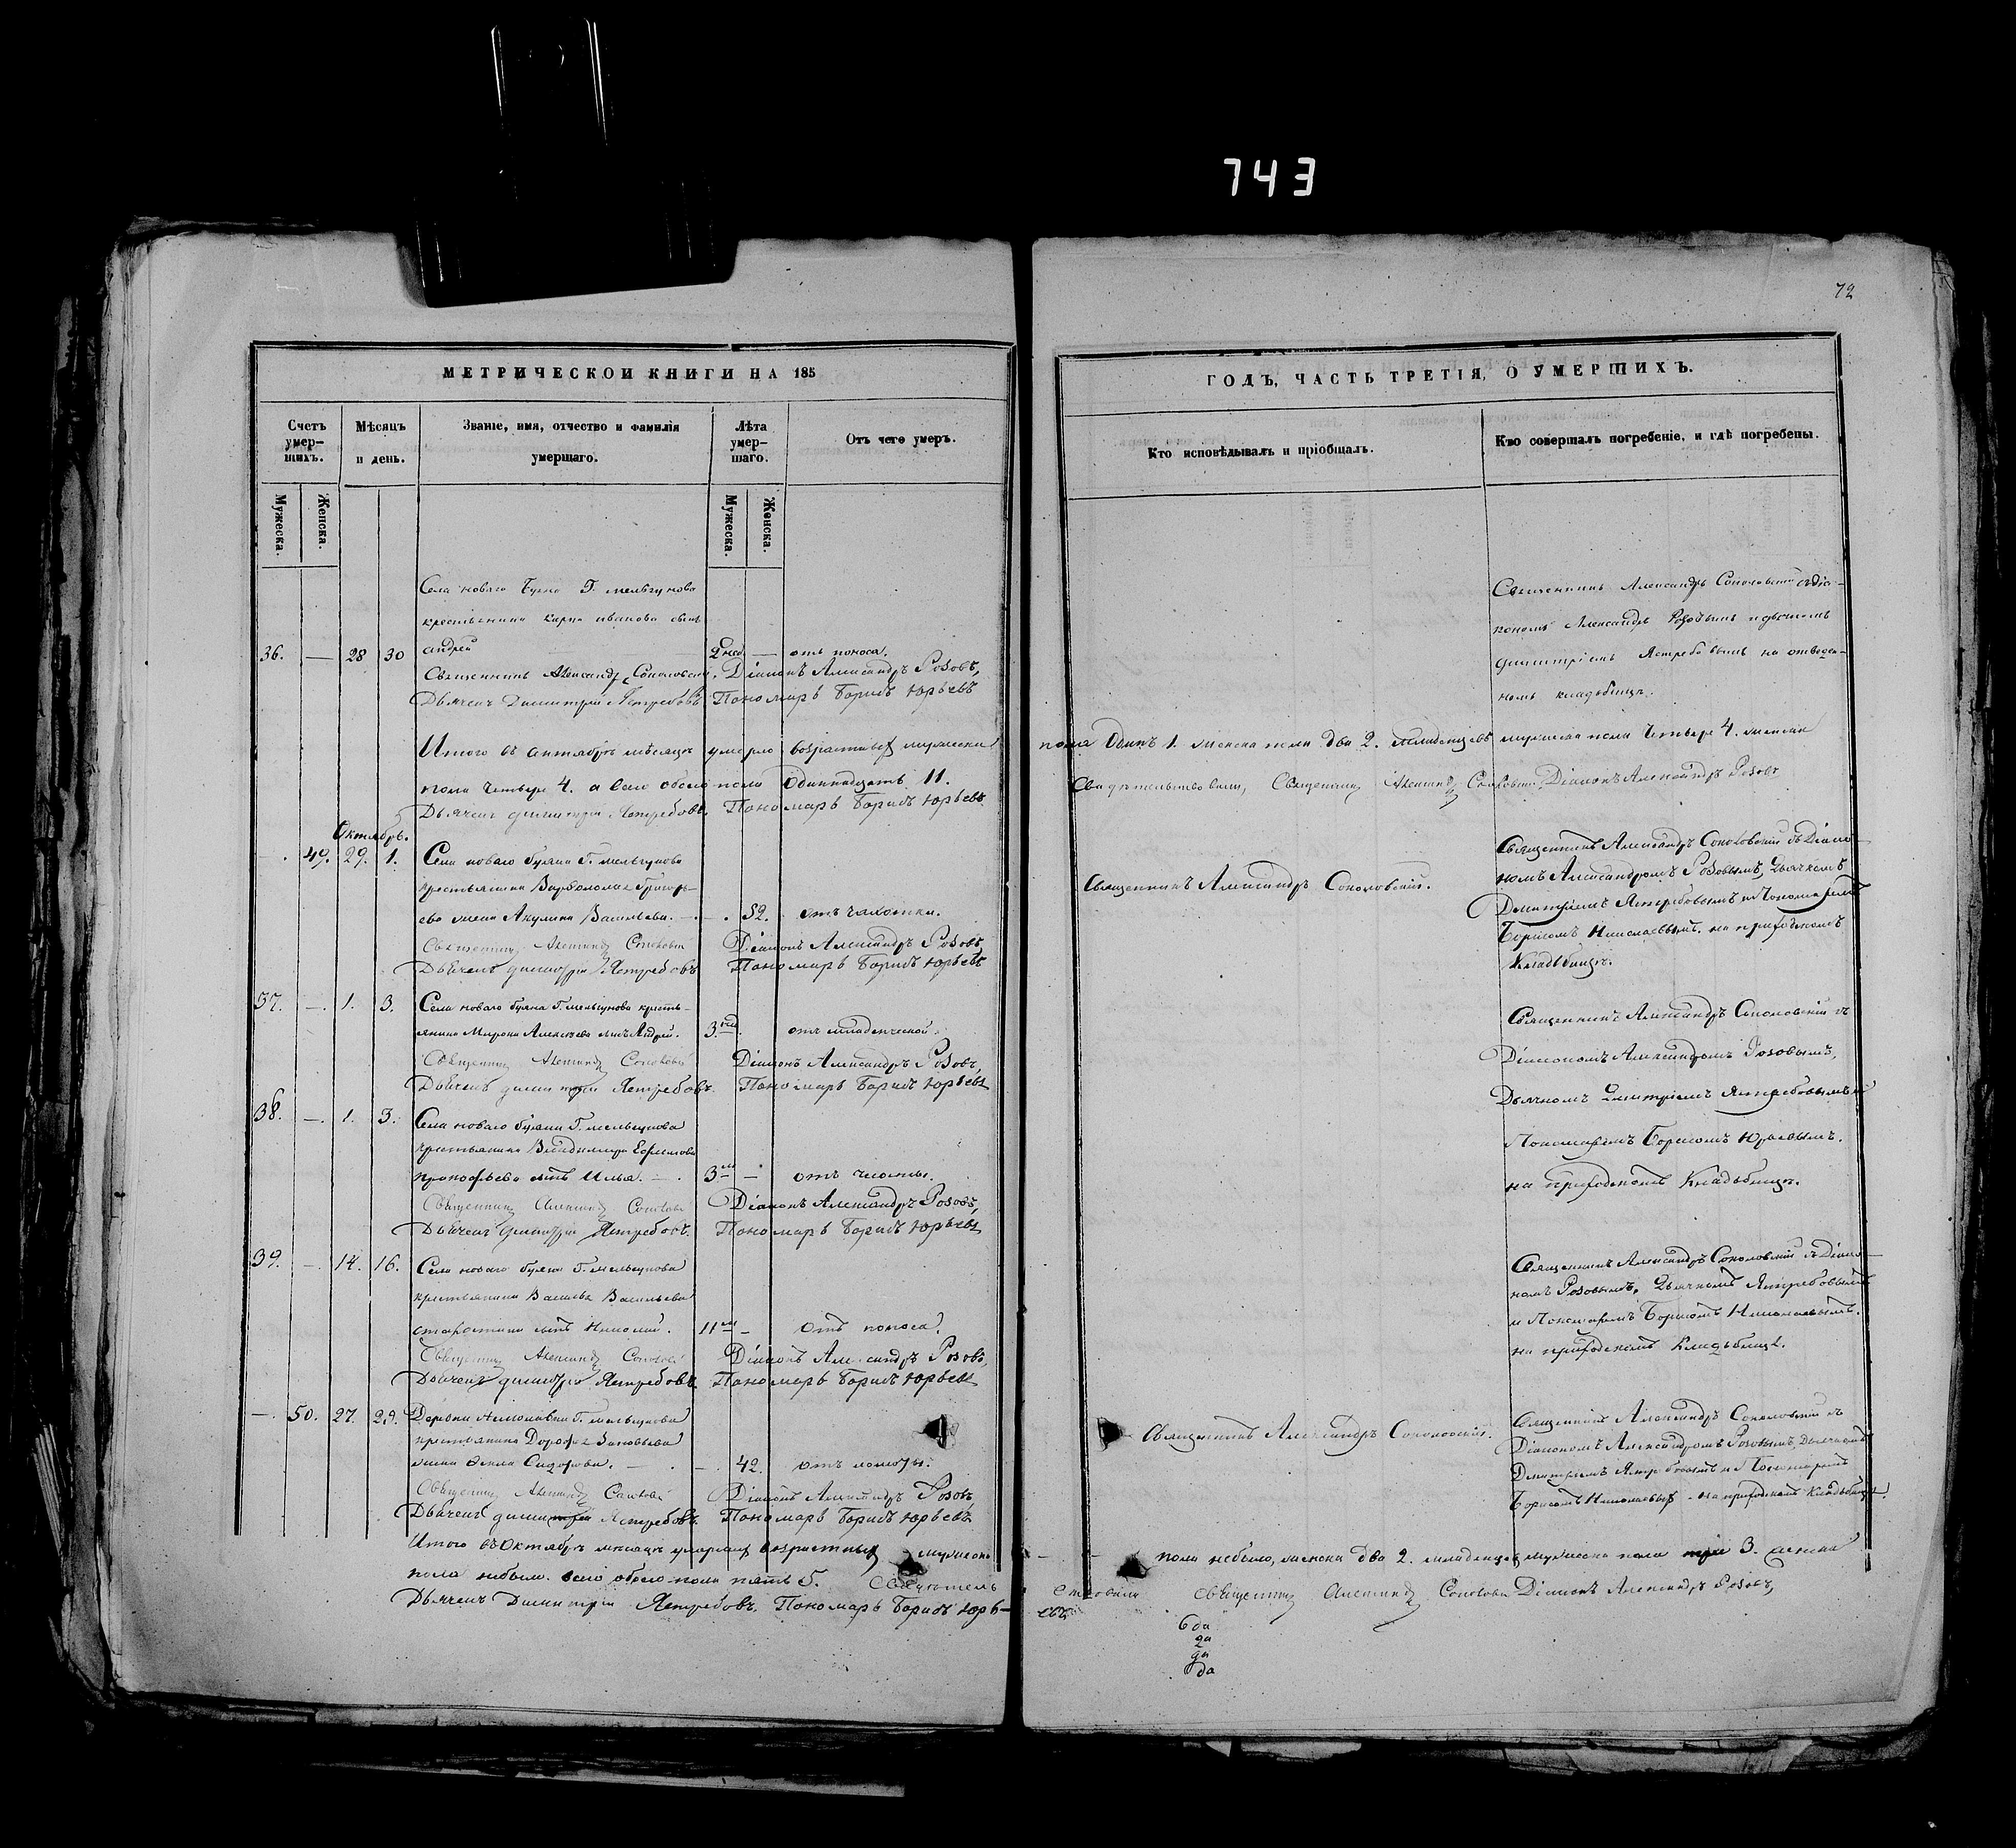 743
72
МЕТРИЧЕСКОЙ КНИГИ НА 185
ГОДЪ, ЧАСТЬ ТРЕТІЯ, О УМЕРШИХЪ.
Счетъ умер-шихъ.
Мѣсяцъ и день.
Званіе, имя, отчество и фамилія умершаго.
Лѣта умер-шаго.
Отъ чего умеръ.
Кто исповѣдывалъ и пріобщалъ.
Кто совершалъ погребеніе, и гдѣ погребены.
Мужеска.
Женска.
Мужеска.
Женска.
Села новаго Буяна Г. мельгунова
крестьянина карпа иванова сынъ
36. — 28 30 андрей — отъ поноса.
Священникъ Александръ Соколовскій. Діаконъ Александръ Розовъ,
Дьячекъ Димитрій Ястребовъ Пономарь Борисъ Юрьевъ
Священникъ Александръ Соколовскій съ діа-
кономъ Александръ Розовымъ и дьячкомъ
димитріемъ Ястребовымъ на отведен-
номъ кладбищѣ.
Итого въ мѣсяцѣ умерло возрастныхъ мужеска
пола Одинъ 1. женска пола два 2. младенцевъ мужеска пола четыре 4. женска
пола четыре 4. а всего обоего пола Одиннадцать 11.
Свидѣтельствовали, Священникъ Александръ Соколовскій Діаконъ Александръ Розовъ
Дьячекъ димитрій Ястребовъ. Пономарь Борисъ Юрьевъ
Октябрь.
— 49. 29. 1. Села новаго буяна Г. мельгунова
крестьянина Варфоломея Григорь-
ева жена Акулина Васильева. — 52. отъ чахотки.
Священникъ Александръ Соколовскій Діаконъ Александръ Розовъ,
Дьячекъ димитрій Ястребовъ Пономарь Борисъ Юрьевъ
Священникъ Александръ Соколовскій.
Священникъ Александръ Соколовскій съ Діако-
номъ Александромъ Розовымъ, Дьячкомъ
Димитріемъ Ястребовымъ и Пономаремъ
Борисомъ Николаевымъ. на приходскомъ
Кладбищѣ.
37. — 1. 3. Села новаго буяна Г. мельгунова кресть-
янина Мирона Алексѣева сынъ Андрей. 3 отъ младенческой.
Священникъ Александръ Соколовскій Діаконъ Александръ Розовъ,
Дьячекъ димитрій Ястребовъ. Пономарь Борисъ Юрьевъ
Священникъ Александръ Соколовскій съ
Діакономъ Александромъ Розовымъ,
Дьячкомъ Димитріемъ Ястребовымъ и
Пономаремъ Борисомъ Юрьевымъ.
на приходскомъ Кладбищѣ.
38. — 1. 3. Села новаго буяна Г. мельгунова
крестьянина Владимира Ефимова
прокофьева сынъ Илья. — 3 — отъ
Священникъ Александръ Соколовскій Діаконъ Александръ Розовъ,
Дьячекъ димитрій Ястребовъ. Пономарь Борисъ Юрьевъ
39. — 14. 16. Села новаго буяна Г. мельгунова
крестьянина Василья Васильева
старостина сынъ Николай. 11 — отъ поноса.
Священникъ Александръ Соколовскій Діаконъ Александръ Розовъ
Дьячекъ димитрій Ястребовъ Пономарь Борисъ Юрьевъ
Священникъ Александръ Соколовскій съ Діако-
номъ Розовымъ, Дьячкомъ Ястребовымъ
и Пономаремъ Борисомъ Николаевымъ.
на приходскомъ Кладбищѣ.
— 50. 27. 29. Деревни Г. мельгунова
крестьянина Дорофея Зиновьева
жена Сидорова. — 42. отъ
Священникъ Александръ Соколовскій Діаконъ Александръ Розовъ
Дьячекъ димитрій Ястребовъ. Пономарь Борисъ Юрьевъ
Священникъ Александръ Соколовскій.
Священникъ Александръ Соколовскій съ
Діакономъ Александромъ Розовымъ, Дьячкомъ
Димитріемъ Ястребовымъ и Пономаремъ
Борисомъ Николаевымъ. на приходскомъ Кладбищѣ.
Итого въ Октябрѣ мѣсяцѣ умершихъ возрастныхъ мужеска
пола небыло, женска два 2. младенцевъ мужеска пола три 3. женска
пола небыло. всего обоего пола пять 5. Свидѣтель
ствовали Священникъ Александръ Соколовскій Діаконъ Александръ Розовъ,
Дьячекъ Димитрій Ястребовъ. Пономарь Борисъ Юрь-
евъ